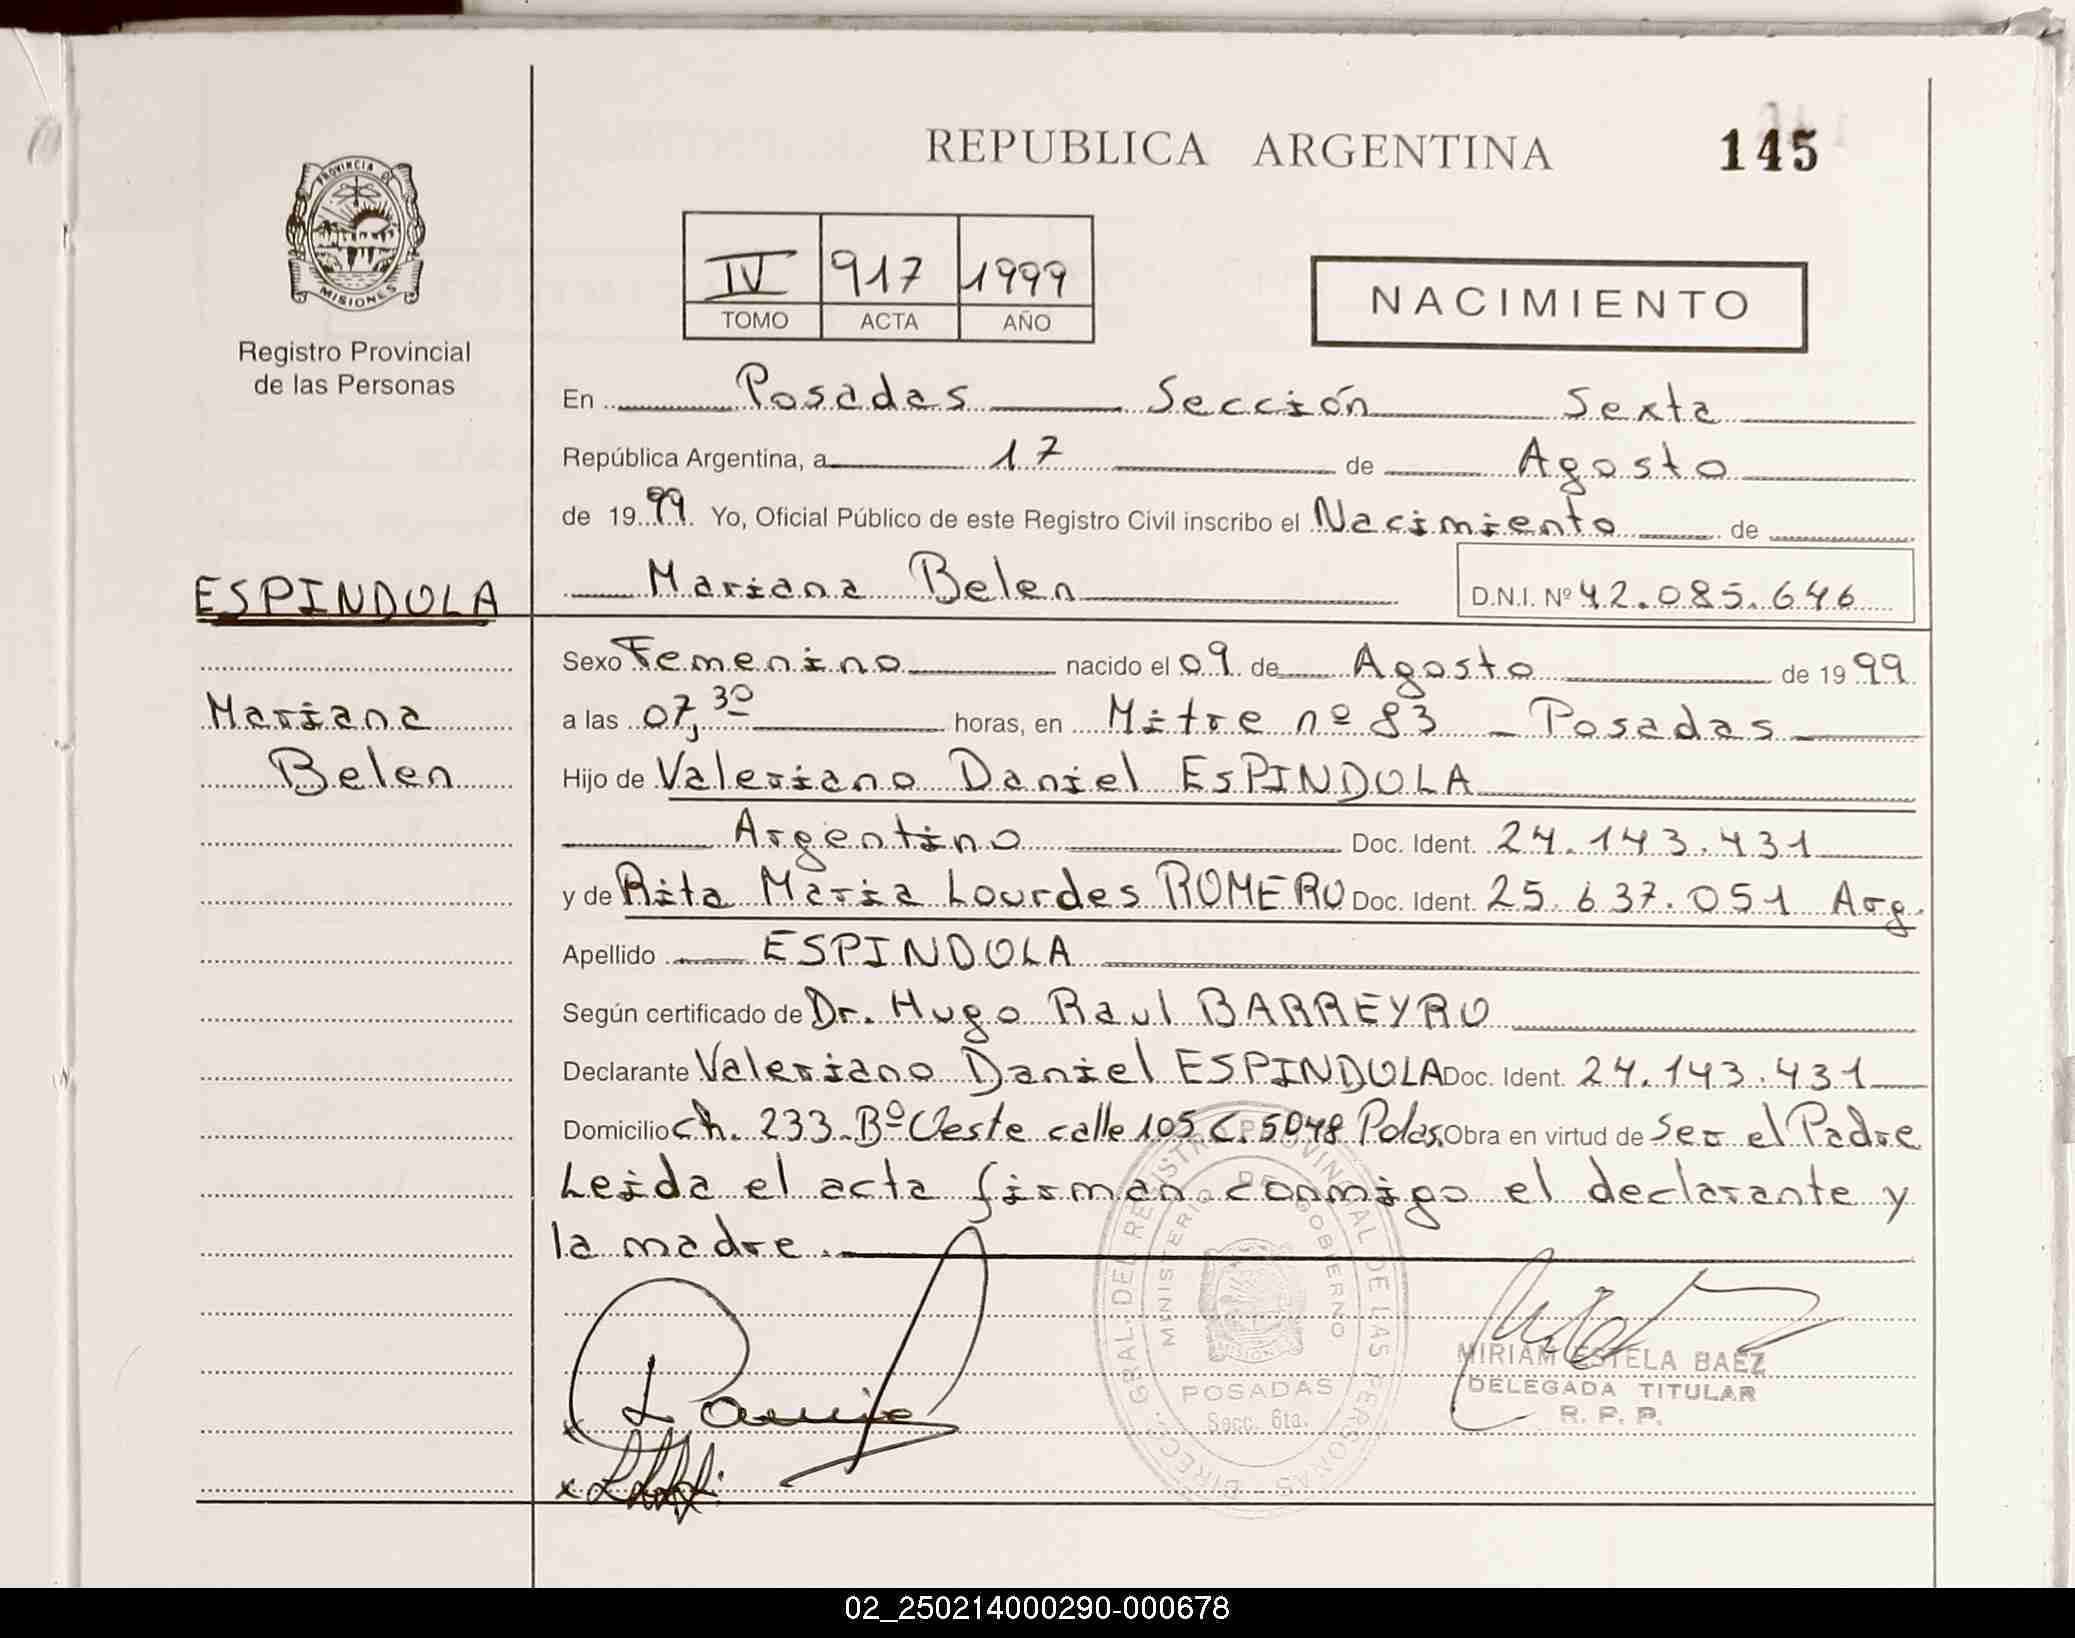 REPUBLICA ARGENTINA
145
PROVINCIA DE
MISIONES
Registro Provincial
de las Personas
IV 917 1999
TOMO ACTA AÑO
NACIMIENTO
En Posadas Sección Sexta
República Argentina, a 17 de Agosto
de 1999. Yo, Oficial Público de este Registro Civil inscribo el Nacimiento de
ESPINDOLA
Mariana Belen D.N.I. Nº 42.085.646
Sexo Femenino nacido el 09 de Agosto de 1999
Mariana
Belen
a las 07,30 horas, en Mitre nº 83 - Posadas
Hijo de Valeriano Daniel ESPINDOLA
Argentino Doc. Ident. 24.143.431
y de Rita Maria Lourdes ROMERO Doc. Ident. 25.637.051 Arg.
Apellido ESPINDOLA
Según certificado de Dr. Hugo Raul BARREYRO
Declarante Valeriano Daniel ESPINDOLA Doc. Ident. 24.143.431
Domicilio Ch. 233 Bº Oeste calle 105 C. 5048 Pdas. Obra en virtud de Ser el Padre
Leida el acta firman conmigo el declarante y
la madre.
DIRECC. GRAL. DEL REGISTRO PROVINCIAL DE LAS PERSONAS
MINISTERIO DE GOBIERNO
MISIONES
POSADAS
Secc. 6ta.
MIRIAM ESTELA BAEZ
DELEGADA TITULAR
R. P. P.
02_250214000290-000678